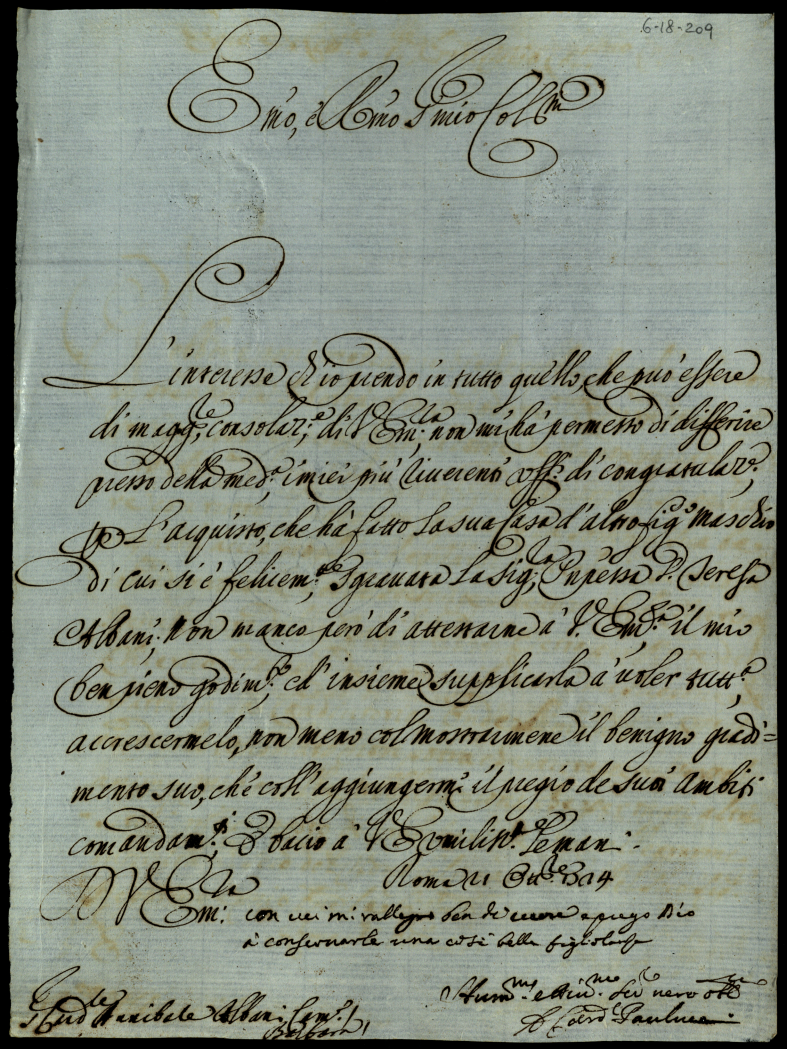 6-18-209
Emo, e Rmo S mio Col.mo
L'interesse ch'io prendo in tutto quello, che può essere
di magg.re consolaz.e di V. Em.za non mi hà permesso di differire
presso della med.a i miei più riverenti uff.i di congratulaz.e
p L'acquisto, che hà fatto la sua Casa d'altro fig.o maschio
di cui si è felicem.te sgravata la Sig.ra Pnpessa D. Teresa
Albani. Non manco però di attestarne à V. Em.za il mio
ben pieno godim.to, ed'insieme supplicarla à voler tutt.a
accrescermelo, non meno col mostrarmene il benigno gradi=
mento suo, che coll'aggiungermi il pregio de suoi ambiti
comandam.ti, E bacio à V. E. umiliss.te le mani.
Roma 21 8bre
V. Em.za con cui mi rallegro ben di cuore e prego Dio
à conservarle una così bella figliolanza
S. Card.le Annibale Albani Cam.
Hum.mo ser.re
Il Card. Paulucci